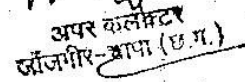 अपर कलेक्टर
जाँजगीर-चापा (छ.ग.)